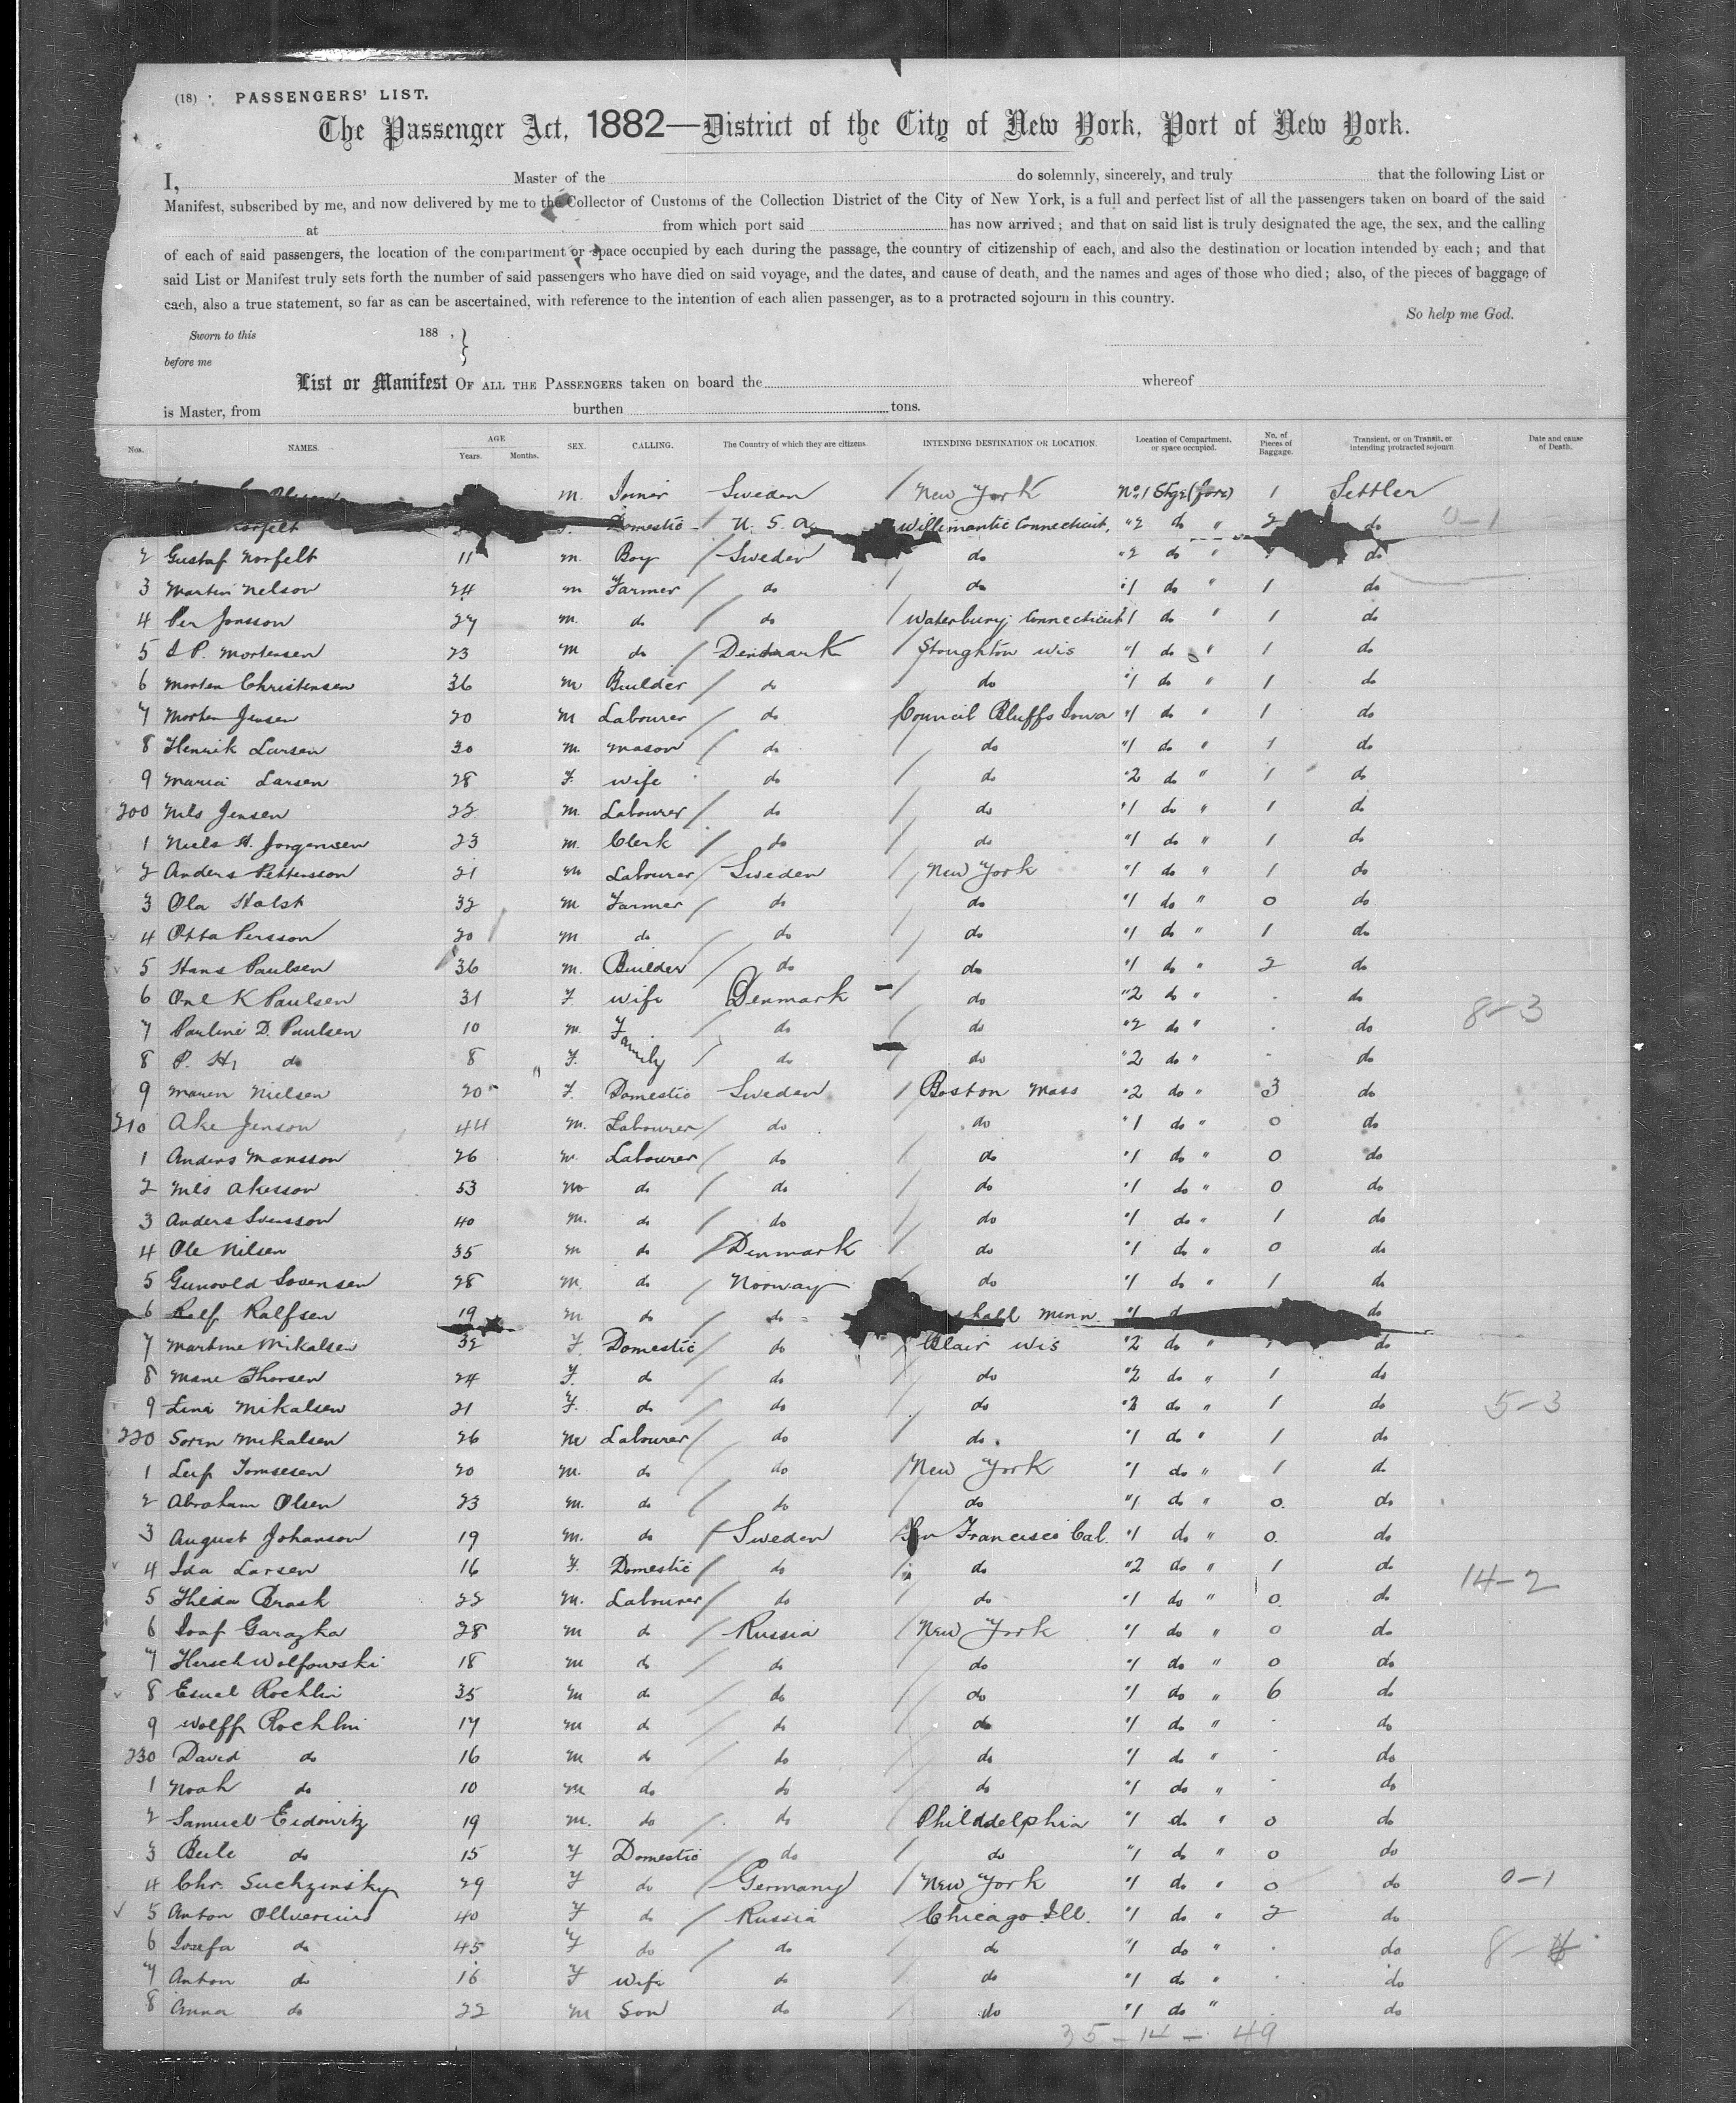 (18) PASSENGERS' LIST.
The Passenger Act, 1882—District of the City of New York, Port of New York.
I, Master of the do solemnly, sincerely, and truly that the following List or
Manifest, subscribed by me, and now delivered by me to the Collector of Customs of the Collection District of the City of New York, is a full and perfect list of all the passengers taken on board of the said
at from which port said has now arrived; and that on said list is truly designated the age, the sex, and the calling
of each of said passengers, the location of the compartment or space occupied by each during the passage, the country of citizenship of each, and also the destination or location intended by each; and that
said List or Manifest truly sets forth the number of said passengers who have died on said voyage, and the dates, and cause of death, and the names and ages of those who died; also, of the pieces of baggage of
each, also a true statement, so far as can be ascertained, with reference to the intention of each alien passenger, as to a protracted sojourn in this country.
So help me God.
Sworn to this 188 , }
before me
List or Manifest OF ALL THE PASSENGERS taken on board the whereof
is Master, from burthen tons.
Nos. NAMES. AGE Years. Months. SEX. CALLING. The Country of which they are citizens. INTENDING DESTINATION OR LOCATION. Location of Compartment, or space occupied. No. of Pieces of Baggage. Transient, or on Transit, or intending protracted sojourn. Date and cause of Death.
m. Joiner Sweden / New York No 1 Stge (fore) 1 Settler
Domestic / U.S.a Willimantic Connecticut, "2 do " 2 do 0-1
2 Gustaf Norfelt 11 m. Boy / Sweden do "2 do " do
3 Martin Nelson 24 m Farmer / do / do "1 do " 1 do
4 Per Jonsson 27 m. do / do / Waterbury, Connecticut "1 do " 1 do
5 P. Mortensen 23 m do / Denmark / Stoughton Wis "1 do " 1 do
6 Morten Christensen 36 m Builder / do / do "1 do " 1 do
7 Morten Jensen 20 m Labourer / do / Council Bluffs Iowa "1 do " 1 do
8 Henrik Larsen 30 m. Mason / do / do "1 do " 1 do
9 Maria Larsen 28 F. wife do / do "2 do " 1 do
200 Nils Jensen 22 m. Labourer / do / do "1 do " 1 do
1 Niels H. Jorgensen 23 m. Clerk / do / do "1 do " 1 do
2 Anders Pettersson 21 m Labourer / Sweden / New York "1 do " 1 do
3 Ola Holst 32 m Farmer / do / do "1 do " 0 do
4 Otto Persson 20 m do / do / do "1 do " 1 do
5 Hans Paulsen 36 m. Builder / do / do "1 do " 2 do
6 K Paulsen 31 F wife Denmark / do "2 do " - do
7 Pauline D. Paulsen 10 m. Family do do "2 do " - do 8-3
8 P. H. do 8 F. do / do "2 do " - do
9 Maren Nielsen 20 F. Domestic Sweden / Boston Mass "2 do " 3 do
210 Ake Jenson 44 m. Labourer / do do "1 do " 0 do
1 Anders Mansson 26 m. Labourer / do / do "1 do " 0 do
2 Nils Akesson 53 m do / do / do "1 do " 0 do
3 Anders Svensson 40 m. do / do / do "1 do " 1 do
4 Ole Nilsen 35 m do / Denmark / do "1 do " 0 do
5 Gunvold Sovensen 28 m. do / Norway do "1 do " 1 do
6 Ralf Ralfsen 19 m do / do shall Minn. "1 do
7 Martine Mikalsen 32 F. Domestic / do / Blair Wis "2 do " do
8 Thorsen 24 F. do / do / do "2 do " 1 do
9 Lina Mikalsen 21 F. do / do / do "2 do " 1 do 5-3
220 Soren Mikalsen 26 m Labourer / do / do. "1 do " 1 do
1 20 m. do / do / New York "1 do " 1 do
2 Abraham Olsen 23 m. do / do / do "1 do " 0. do
3 August Johanson 19 m. do / Sweden / San Francisco Cal. "1 do " 0. do
4 Ida Larsen 16 F. Domestic / do / do "2 do " 1 do
5 Hilda 22 m. Labourer / do / do "1 do " 0. do 14-2
6 Garazka 28 m do / Russia / New York "1 do " 0 do
7 Hersch Wolfowski 18 m do / do / do "1 do " 0 do
8 Rochlin 35 m do / do / do "1 do " 6 do
9 Wolff Rochlin 17 m do / do / do "1 do " - do
230 David do 16 m do / do / do "1 do " - do
1 Noah do 10 m do do / do "1 do " - do
2 Samuel Eidowitz 19 m. do / do Philadelphia "1 do " 0 do
3 Beile do 15 F Domestic do / do "1 do " 0 do
4 Chr. Suchzinsky 29 F do / Germany / New York "1 do " 0 do 0-1
5 Anton 40 F do / Russia / Chicago Ill. "1 do " 2 do
6 Josefa do 45 F do / do / do "1 do " - do 8-
7 Anton do 16 F wife do / do "1 do " - do
8 Anna do 22 m Son do / do "1 do " do
35-14-49